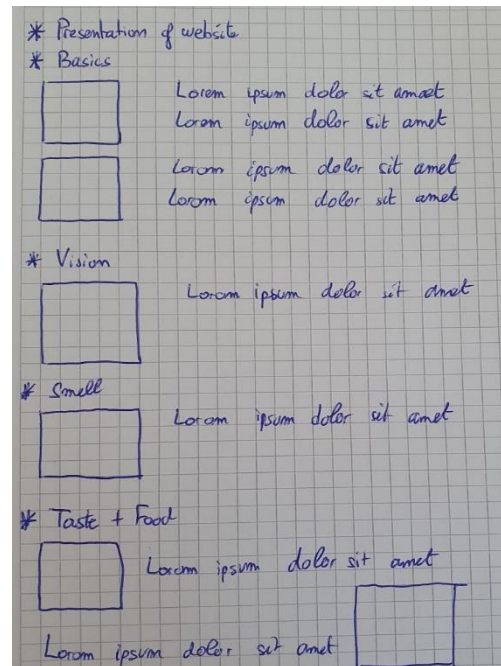 * Presentation of website
* Basics
Lorem ipsum dolor sit amaet
Lorem ipsum dolor sit amet
Lorem ipsum dolor sit amet
Lorem ipsum dolor sit amet
* Vision
Lorem ipsum dolor sit amet
* Smell
Lorem ipsum dolor sit amet
* Taste + Food
Lorem ipsum dolor sit amet
Lorem ipsum dolor sit amet